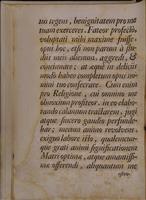 tuo urgens, benignitatem pro me
tuam exerceres. Fateor profecto,
voluptati mihi maximæ fuisse
opus hoc, etsi non parum à stu-
dijs meis alienum, aggredi, &
concinnare; at æquè in delicijs
undo habeo completum opus no-
mini tuo consecrare. Cum enim
pro Religione, cui omnium me
obnoxium profiteor, in eo elabo-
rando calamum traxissem, jugi
atque sincero gaudio perfunde-
bar; mecum animo revolvens,
exiguo labore isto, qualemcun-
que grati animi significationem
Matri optimæ, atque amantissi-
mæ offerendi, aliquantum me